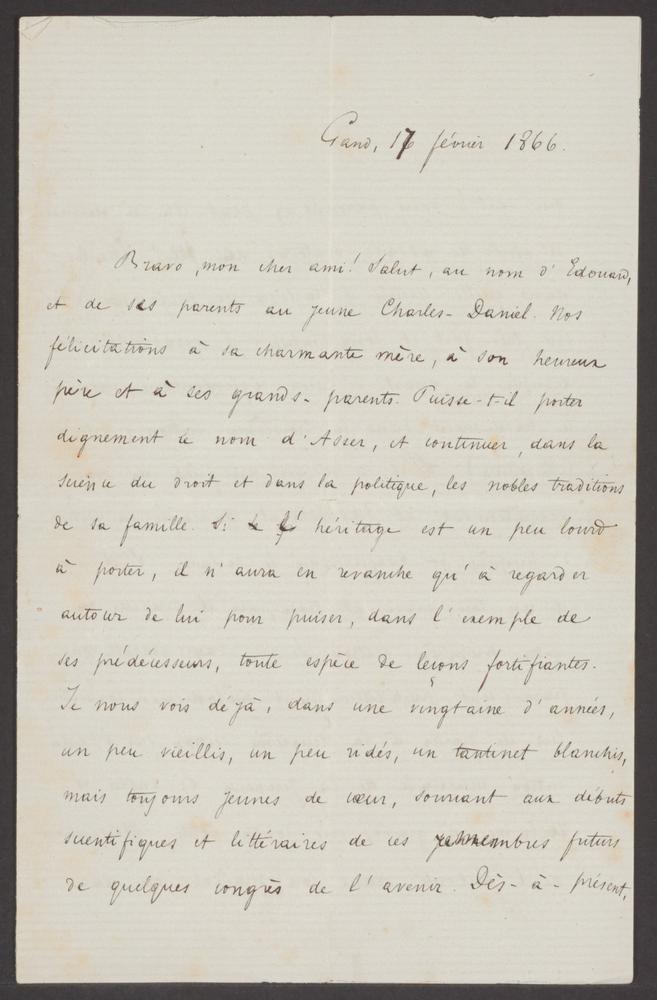 Gand, 17 février 1866.
Bravo, mon cher ami! Salut, au nom d'Edouard,
et de ses parents au jeune Charles-Daniel. Nos
félicitations à sa charmante mère, à son heureux
père et à ses grands-parents. Puisse-t-il porter
dignement le nom d'Asser, et continuer, dans la
science du droit et dans la politique, les nobles traditions
de sa famille. Si l'héritage est un peu lourd
à porter, il n'aura en revanche qu'à regarder
autour de lui pour puiser, dans l'exemple de
ses prédécesseurs, toute espèce de leçons fortifiantes.
Je nous vois déjà, dans une vingtaine d'années,
un peu vieillis, un peu ridés, un tantinet blanchis,
mais toujours jeunes de cœur, souriant aux débuts
scientifiques et littéraires de ces membres futurs
de quelques congrès de l'avenir. Dès-à-présent,